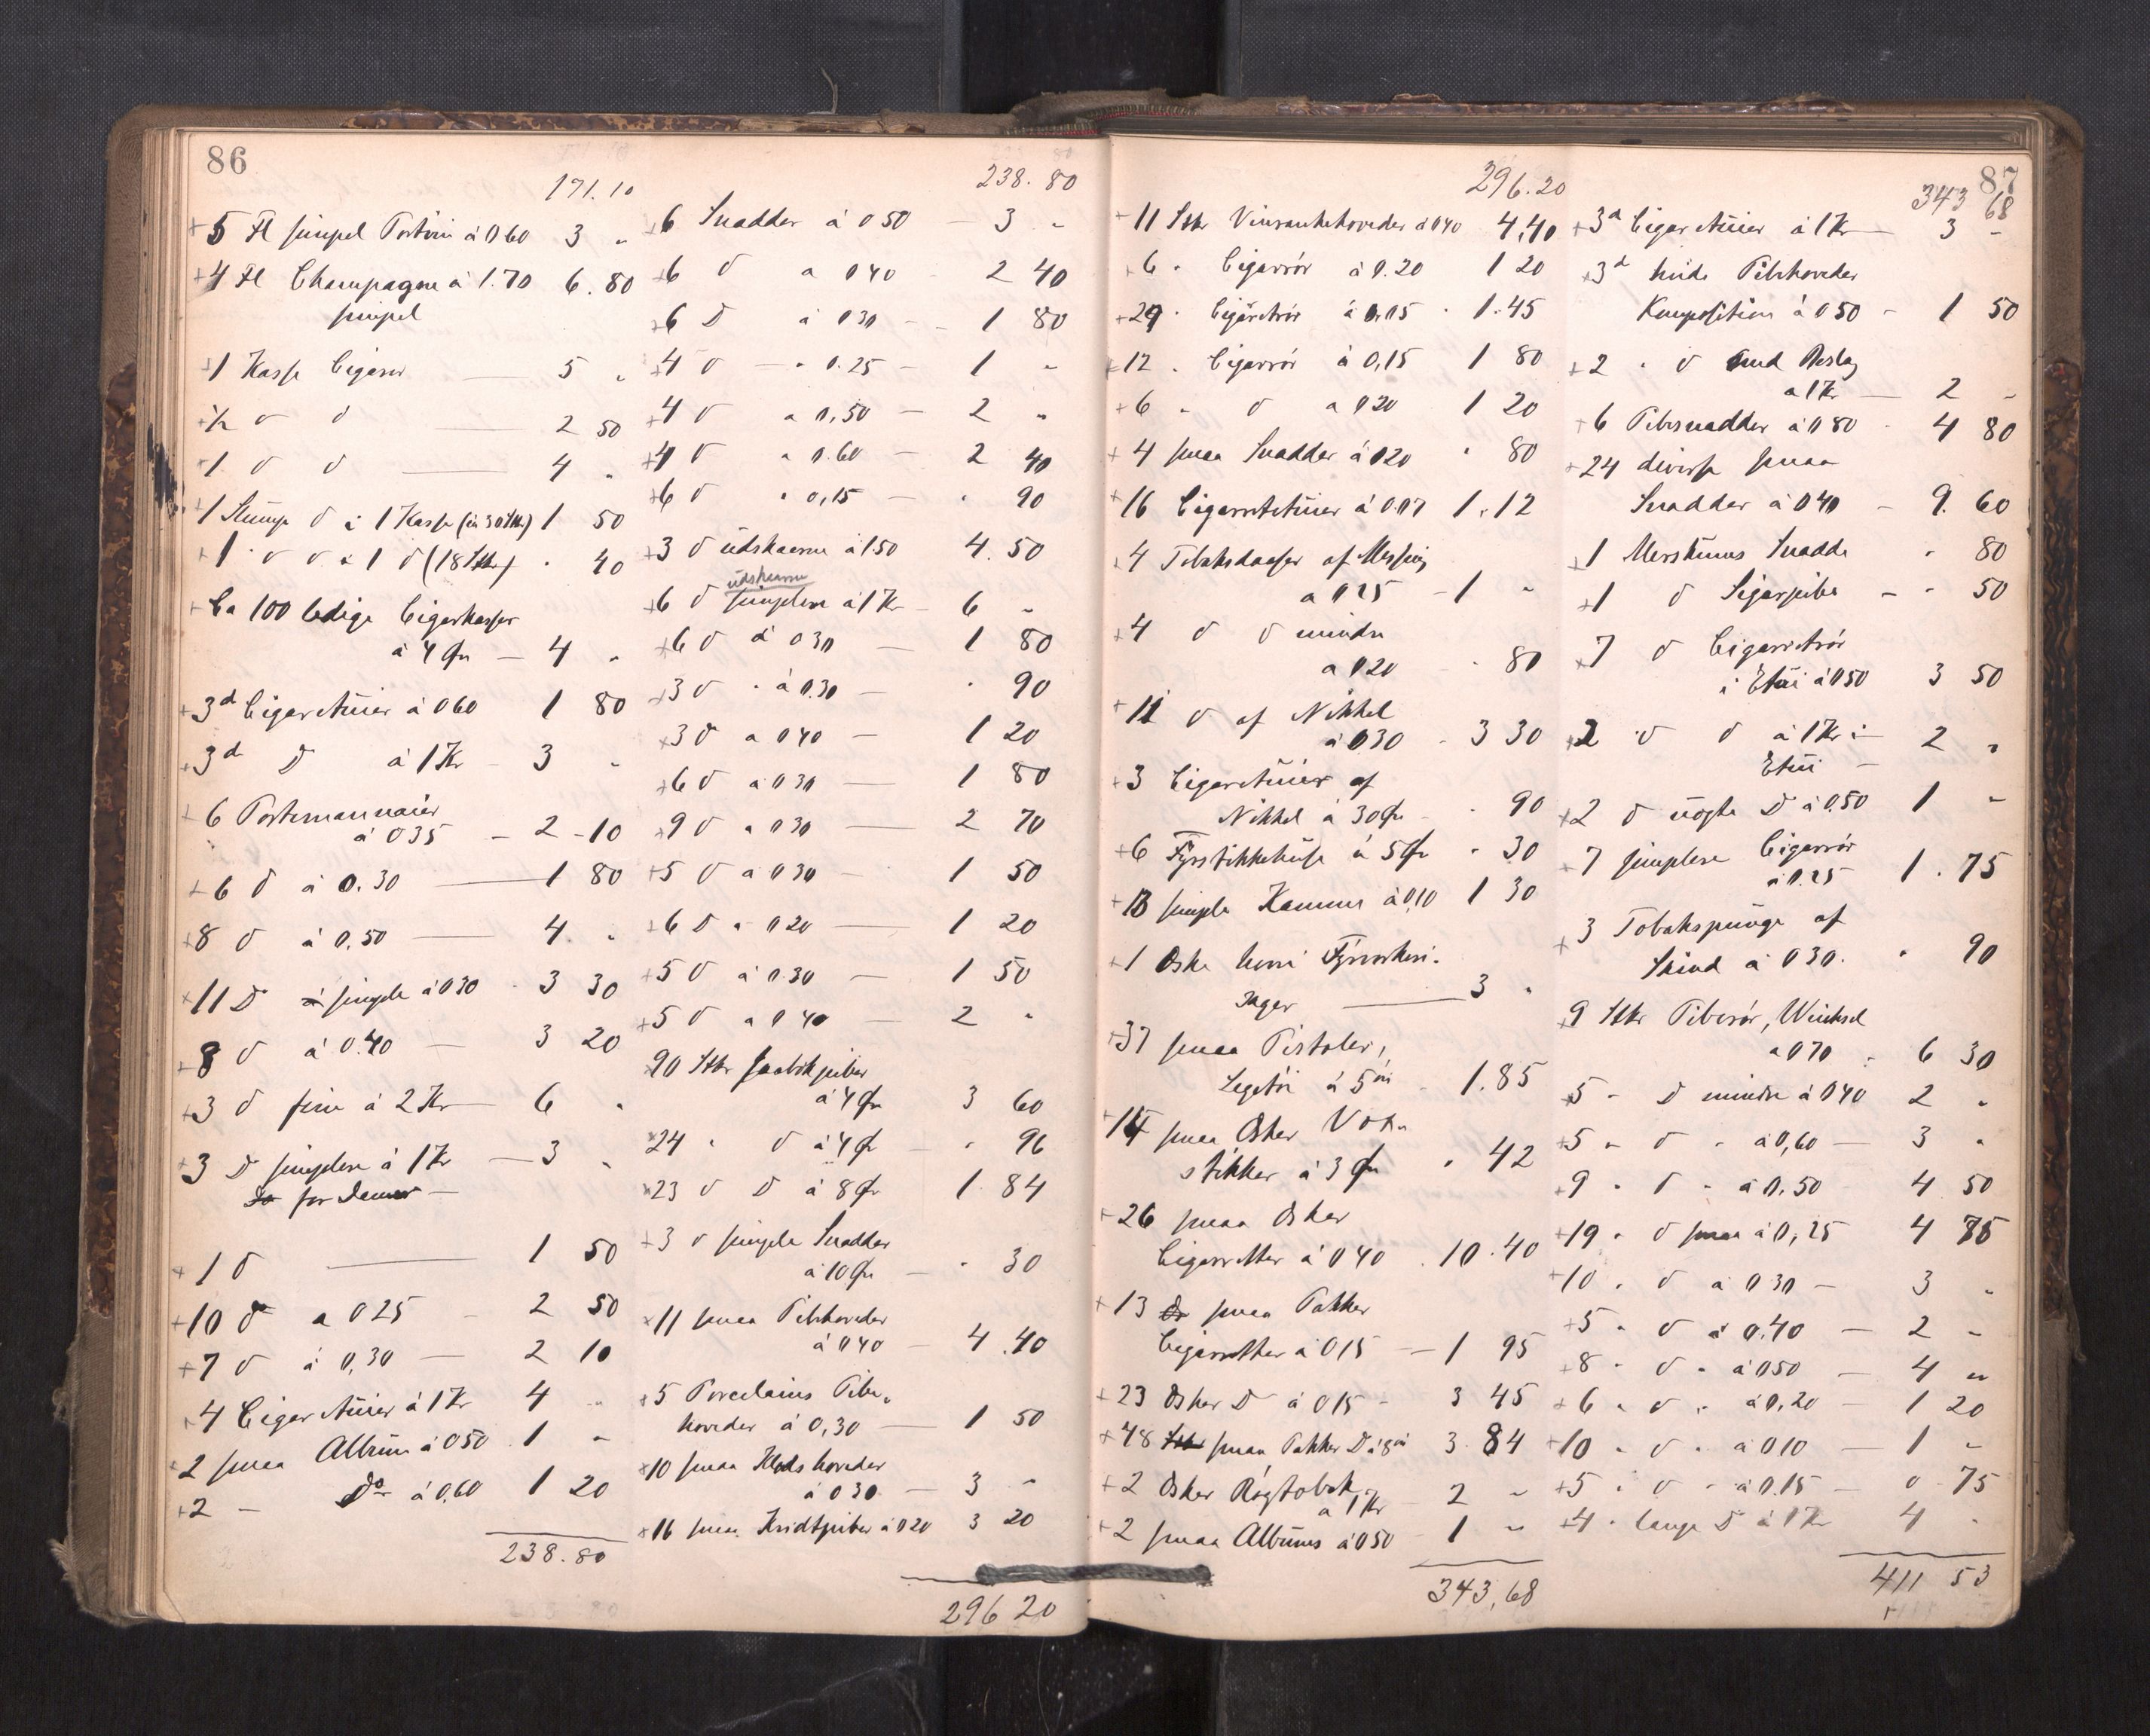 86
171.10
+5 Fl simpel Portvin à 0 60 3 "
+4 Fl Champagne à 1.70 6.80
simpel
+1 Kasse Cigarer — 5 "
+½ d d — 2 50
+1 d d — 4 "
+1 Slump d i 1 Kasse (ca 30 Stk) 1 50
+1 " d d i 1 d (18 Stk) " 40
+Ca 100 ledige Cigarkasser
à 4 Øre — 4 "
+3 d Cigaretuier à 0 60 1 80
+3 d D à 1 Kr - 3 "
+6 Portemonnaier
à 0 35 - 2 - 10
+6 d à 0.30 — 1 80
+8 d à 0.50 — 4. "
+11 D simple à 0 30 - 3 30
+8 d à 0.40 — 3 20
+3 d fine à 2 Kr — 6 "
+3 D simplere à 1 Kr — 3 "
for Damer —
+1 d — 1 50
+10 d a 0 25 - 2 50
+7 d à 0,30 — 2 10
+4 Cigaretuier à 1 Kr 4 "
+2 smaa Album à 0 50 1 "
+2 — Do à 0.60 1 20
238.80
238.80
+6 Snadder à 0 50 — 3 "
+6 d a 0 40 - 2 40
+6 D à 0 30 - - 1 80
+4 d — " 0.25 - 1 "
+4 d a 0,50 — 2 "
+4 d " 0.60 — 2 40
+6 d " 0,15 — " 90
+3 d udskaarne à 1.50 4.50
udskaarne
+6 d simplere à 1 Kr — 6 "
+6 d à 0 30 — 1 80
+3 d " à 0.30 — " 90
+3 d a 0 40 — 1 20
+6 d à 0 30 — 1 80
+9 d " 0 30 — 2 70
+5 d a 0 30 — 1 50
+6 D " 0 20 — 1 20
+5 d à 0.30 — 1 50
+5 d a 0 40 — 2 "
+90 Stkr Snadskpiber
à 4 Øre 3 60
+24 " d à 4 Ør - " 96
+23 d D à 8 Ør 1.84
+3 d simple Snadder
à 10 Øre — " 30
+11 smaa Pibehoveder
à 0 40 — 4.40
+5 Porcelains Pibe-
hoveder à 0,30 — 1 50
+10 smaa Hoveder
à 0 30 — 3 "
+16 smaa Kridtpiber à 0 20 3 20
296 20
87
296.20
+11 Stkr Vinrankehoveder à 0 40 4,40
+6 " Cigarrør à 0.20 1 20
+29 " Cigaretrør à 0.05 " 1.45
+12 " Cigarrør à 0,15 1 80
+6 " d a 0 20 1 20
+4 smaa Snadder à 0 20 " 80
+16 Cigarretetuier à 0.07 1.12
+4 Tobaksdaaser af Messing
a 0 25 - 1 "
+4 d d mindre
a 0 20 " 80
+11 d af Nikkel
à 0.30 - 3 30
+3 Cigaretuier af
Nikkel à 30 Øre " 90
+6 Fyrstikkehuse à 5 Øre " 30
+13 simple Kamme à 0,10 1 30
+1 Æske
sager — 3 "
+37 smaa Pistoler,
Legetøi à 5 øre - 1.85
+14 smaa Æsker Vox-
stikker à 3 Øre " 42
+26 smaa Æsker
Cigaretter à 0 40 . 10.40
+13 smaa Pakker
Cigaretter à 0 15 — 1 95
+23 Æsker D à 0 15 - 3 45
+48 smaa Pakker D à 8 øre 3.84
+2 Æsker Røgtobak
à 1 Kr - 2 "
+2 smaa Albums à 0 50 - 1 "
343,68
343 68
+3 d Cigaretuier à 1 Kr — 3 "
+3 d hvide Pibehoveder
Komposition à 0 50 - 1 50
+2 " d med Beslag
a 1 Kr — 2 "
+6 Pibesnadder à 0 80 - 4 80
+24 diverse smaa
Snadder à 0 40 - 9.60
+1 Merskums Snadde " 80
+1 d Sigarpibe - " 50
+7 d Cigarretrør
i Etui à 0 50 3 50
+2 d d à 1 Kr i 2 "
Etui —
+2 d uægte D à 0.50 1 "
+7 simplere Cigarrør
à 0.25 1.75
+3 Tobakspunge af
Skind à 0 30. " 90
+9 Stkr Piberør, Weichsel
a 0 70 - 6 30
+5 - D mindre à 0 40 2 "
+5 " d " à 0,60 — 3 "
+9 " d " à 0.50 4 50
+19 " d smaa à 0,25 4 75
+10 " d a 0 30 — 3 "
+5 " d à 0.40 — 2 "
+8 " d " à 0 50 — 4 "
+6 " d " à 0.20 — 1 20
+10 " d " à 0 10 — 1 "
+5 " d " à 0.15 — 0 75
+4 " lange D à 1 Kr 4 "
411 53